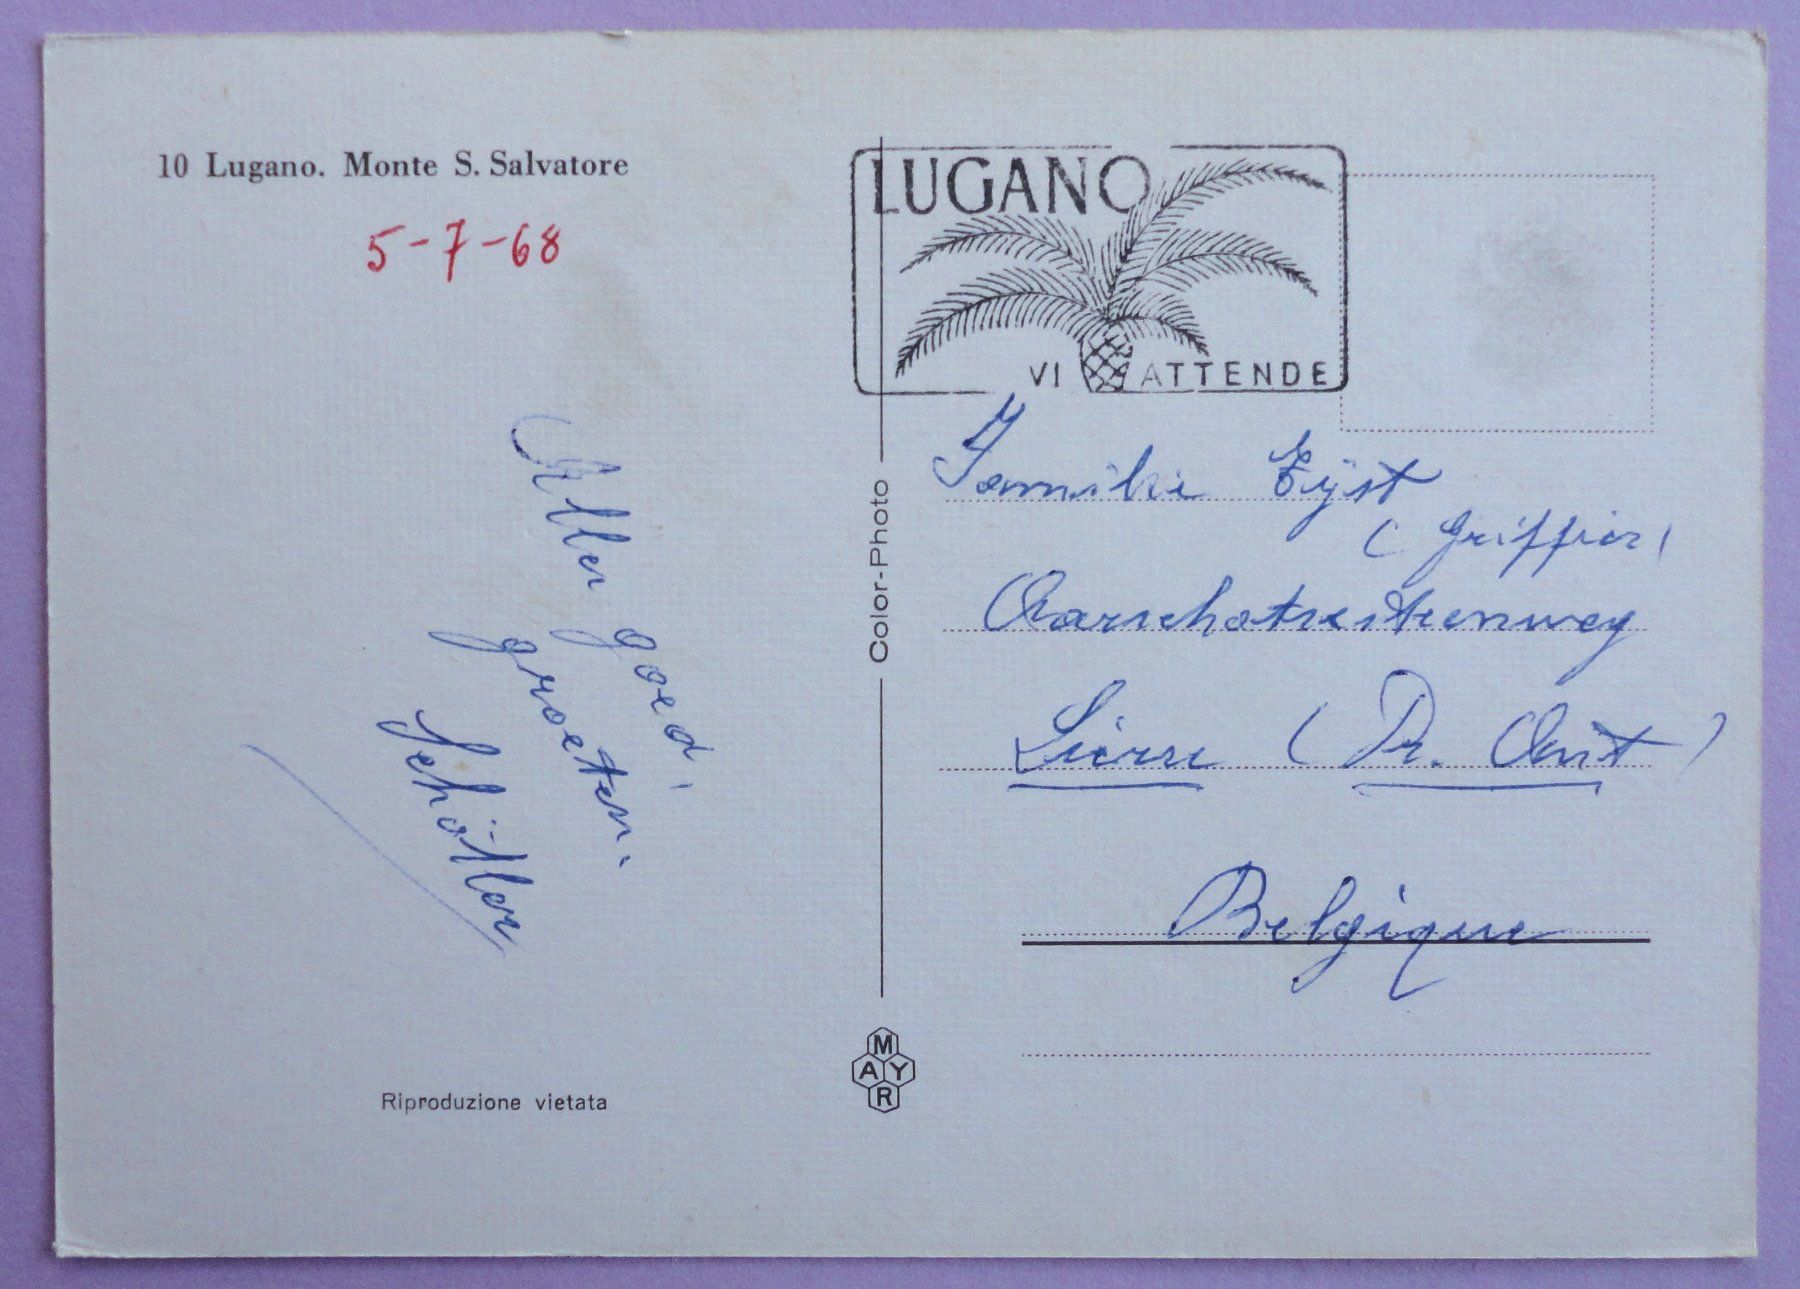 10 Lugano. Monte S. Salvatore
5-7-68
Alles goed.
groeten.
Schöller
Riproduzione vietata
Color-Photo
MAYR
LUGANO
VI ATTENDE
Familie Eÿst
(Griffier)
Aarschotsesteenweg
Lierre (Pr. Ant)
Belgique